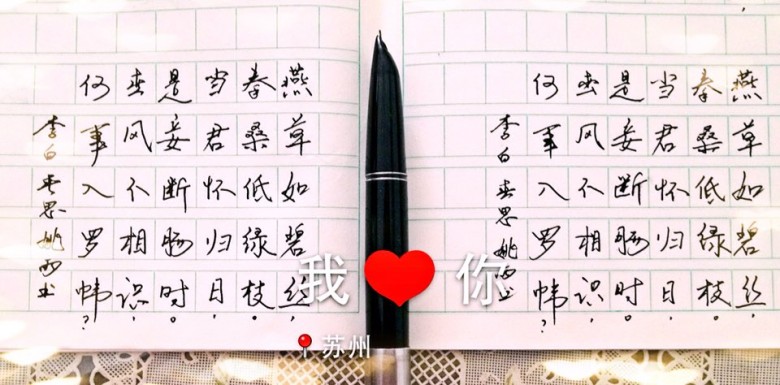 燕草如碧丝，
秦桑低绿枝。
当君怀归日，
是妾断肠时。
春风不相识，
何事入罗帏？
李白春思姚书
燕草如碧丝，
秦桑低绿枝。
当君怀归日，
是妾断肠时。
春风不相识，
何事入罗帏？
李白春思姚书
我❤你
苏州